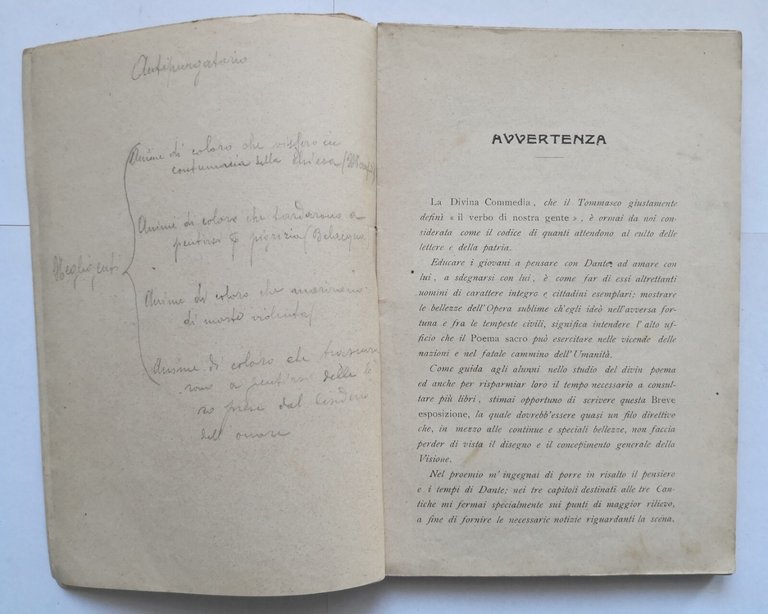 Antipurgatorio
Anime di coloro che vissero in
contumacia della Chiesa (Manfredi)
Anime di coloro che tardarono a
pentirsi p pigrizia (Belacqua
Negligenti
Anime di coloro che morirono
di morte violenta
Anime di coloro che trascura
rono a pentirsi delle
so prese dal
dell'onore
AVVERTENZA
La Divina Commedia, che il Tommaseo giustamente
definì « il verbo di nostra gente », è ormai da noi con-
siderata come il codice di quanti attendono al culto delle
lettere e della patria.
Educare i giovani a pensare con Dante, ad amare con
lui, a sdegnarsi con lui, è come far di essi altrettanti
uomini di carattere integro e cittadini esemplari; mostrare
le bellezze dell'Opera sublime ch'egli ideò nell'avversa for-
tuna e fra le tempeste civili, significa intendere l'alto uf-
ficio che il Poema sacro può esercitare nelle vicende delle
nazioni e nel fatale cammino dell'Umanità.
Come guida agli alunni nello studio del divin poema
ed anche per risparmiar loro il tempo necessario a consul-
tare più libri, stimai opportuno di scrivere questa Breve
esposizione, la quale dovrebb'essere quasi un filo direttivo
che, in mezzo alle continue e speciali bellezze, non faccia
perder di vista il disegno e il concepimento generale della
Visione.
Nel proemio m'ingegnai di porre in risalto il pensiero
e i tempi di Dante; nei tre capitoli destinati alle tre Can-
tiche mi fermai specialmente sui punti di maggior rilievo,
a fine di fornire le necessarie notizie riguardanti la scena,